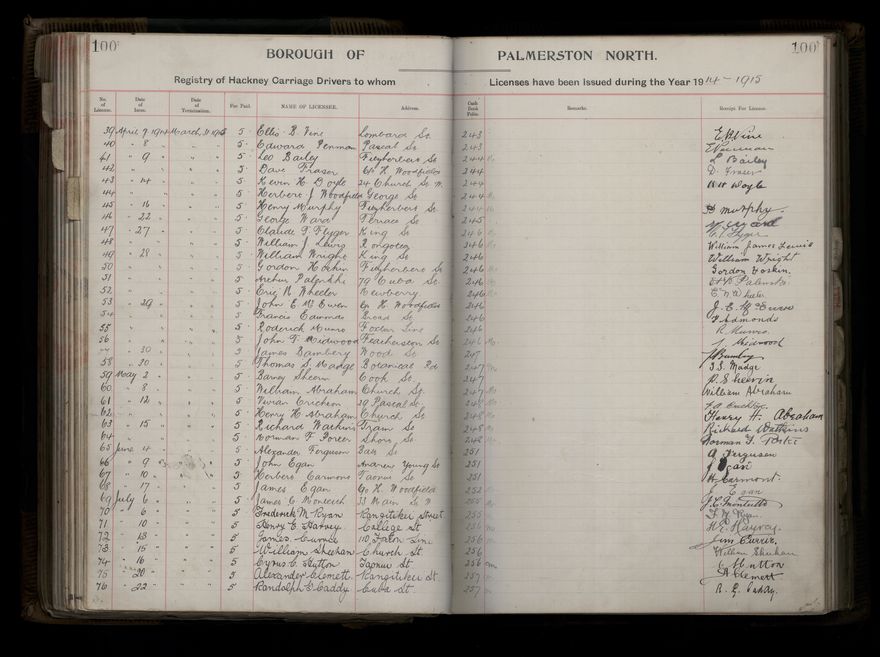 100 100
BOROUGH OF PALMERSTON NORTH.
Registry of Hackney Carriage Drivers to whom Licenses have been Issued during the Year 1914-1915
No. of License. Date of Issue. Date of Termination. Fee Paid. NAME OF LICENSEE. Address. Cash Book Folio. Remarks. Receipt For License.
39 April 7 1914 March 31 1915 5 Ellis B Vine Lombard St 243 E B Vine
40 " 8 " " " 5 Edward Penman Pascal St 243
41 " 9 " " " 5 Leo Bailey Fitzherbert St 244 L Bailey
42 " " " 5 Dave Fraser C/o H Woodfield 244 D. Fraser
43 " 14 " " " 5 Kevin H Doyle 24 Church St W. 244
44 " " " 5 Herbert J Woodfield George St 244
45 " 16 " " " 5 Henry Murphy Fitzherbert St H Murphy
46 " 22 " " " 5 George Ward Terrace St 245
47 " 27 " " " 5 Claude T Flyger King St 246
48 " " " 5 William J Lewis Rongotea 246 William James Lewis
49 " 28 " " " 5 William Wright King St 246 William Wright
50 " " " 5 Gordon Hoskin Fitzherbert St 246 Gordon Hoskin.
51 " " " 5 Arthur 79 Cuba St 246
52 " " " 5 Eric N Wheeler Newberry 246 E N Wheeler
53 " 29 " " " 5 John E McEwen C/o H Woodfield 246 J. E. McEwen
54 " " " 5 Francis Edmonds Broad St 246 F Edmonds
55 " " " 5 Roderick Munro Foxton Line 246 R. Munro.
56 " " " 5 John F Featherston St 246
" 30 " " " 5 James Bambery Wood St 247
58 " 30 " " " 5 Thomas S. Madge Botanical Rd 247 T. S. Madge
59 May 2 " " " 5 Barney Cook St 247
60 " 8 " " " 5 William Abraham Church St. 247 William Abraham
61 " 12 " " " 5 Vivian 29 Pascal St.
62 " " " 5 Henry H Abraham Church St 248 Henry H. Abraham
63 " 15 " " " 5 Richard Watkins Tram St 248 Richard Watkins
64 " " " 5 Norman F. 248 Norman F.
65 June 4 " " " 5 Alexander Ferguson 251 A Ferguson
66 " 9 " " " 5 John Egan Andrew Young St 251 J Egan
67 " 10 " " " 5 Herbert Carmont Taonui St 251 H. Carmont.
68 " 17 " " " 5 James Egan C/o H. Woodfield 252 J Egan
69 July 6 " " " 5 James C Main St 255
70 " 6 " " " 5 Frederick M Ryan Rangitikei Street 255 F. M. Ryan.
71 " 10 " " " 5 Henry E Harvey. College St 256 H. E. Harvey.
72 " 13 " " " 5 James Currie 110 Foxton Line 256 Jim Currie.
73 " 15 " " " 5 William Sheehan Church St 256 William Sheehan
74 " 16 " " " 5 Cyrus C Hutton Taonui St 256 C Hutton
75 " 20 " " " 5 Alexander Clemett Rangitikei St 257 A Clemett
76 " 22 " " " 5 Randolph E Caddy Cuba St 257 R. E. Caddy.